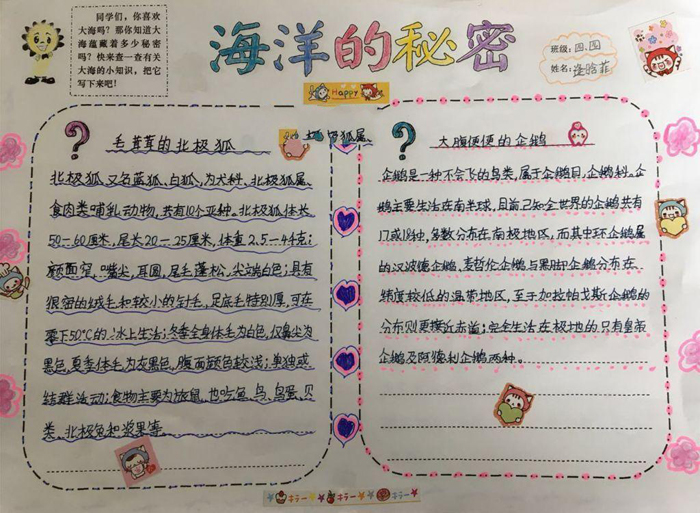 同学们，你喜欢
大海吗？那你知道大
海蕴藏着多少秘密
吗？快来查一查有关
大海的小知识，把它
写下来吧！
海洋的秘密
班级：四.四
姓名：
Happy
毛茸茸的北极狐
北极狐，又名蓝狐、白狐，为犬科，北极狐属，
食肉类哺乳动物，共有10个亚种。北极狐体长
50－60厘米，尾长20－25厘米，体重2.5－4千克；
颜面窄，嘴尖，耳圆，尾毛蓬松，尖端白色；具有
很密的绒毛和较小的针毛，足底毛特别厚，可在
零下50℃的冰上生活；冬季全身体毛为白色，仅鼻尖为
黑色，夏季体毛为灰黑色，腹面颜色较浅；单独或
结群活动；食物主要为旅鼠，也吃鱼、鸟、鸟蛋、贝
类、北极兔和浆果等。
大腹便便的企鹅
企鹅是一种不会飞的鸟类，属于企鹅目，企鹅科。企
鹅主要生活在南半球，目前已知全世界的企鹅共有
17或18种，多数分布在南极地区，而其中环企鹅属
的汉波德企鹅，麦哲伦企鹅与黑脚企鹅分布在
纬度较低的温带地区，至于加拉帕戈斯企鹅的
分布则更接近赤道；完全生活在极地的只有皇帝
企鹅及阿德利企鹅两种。
キラー キラー キラー